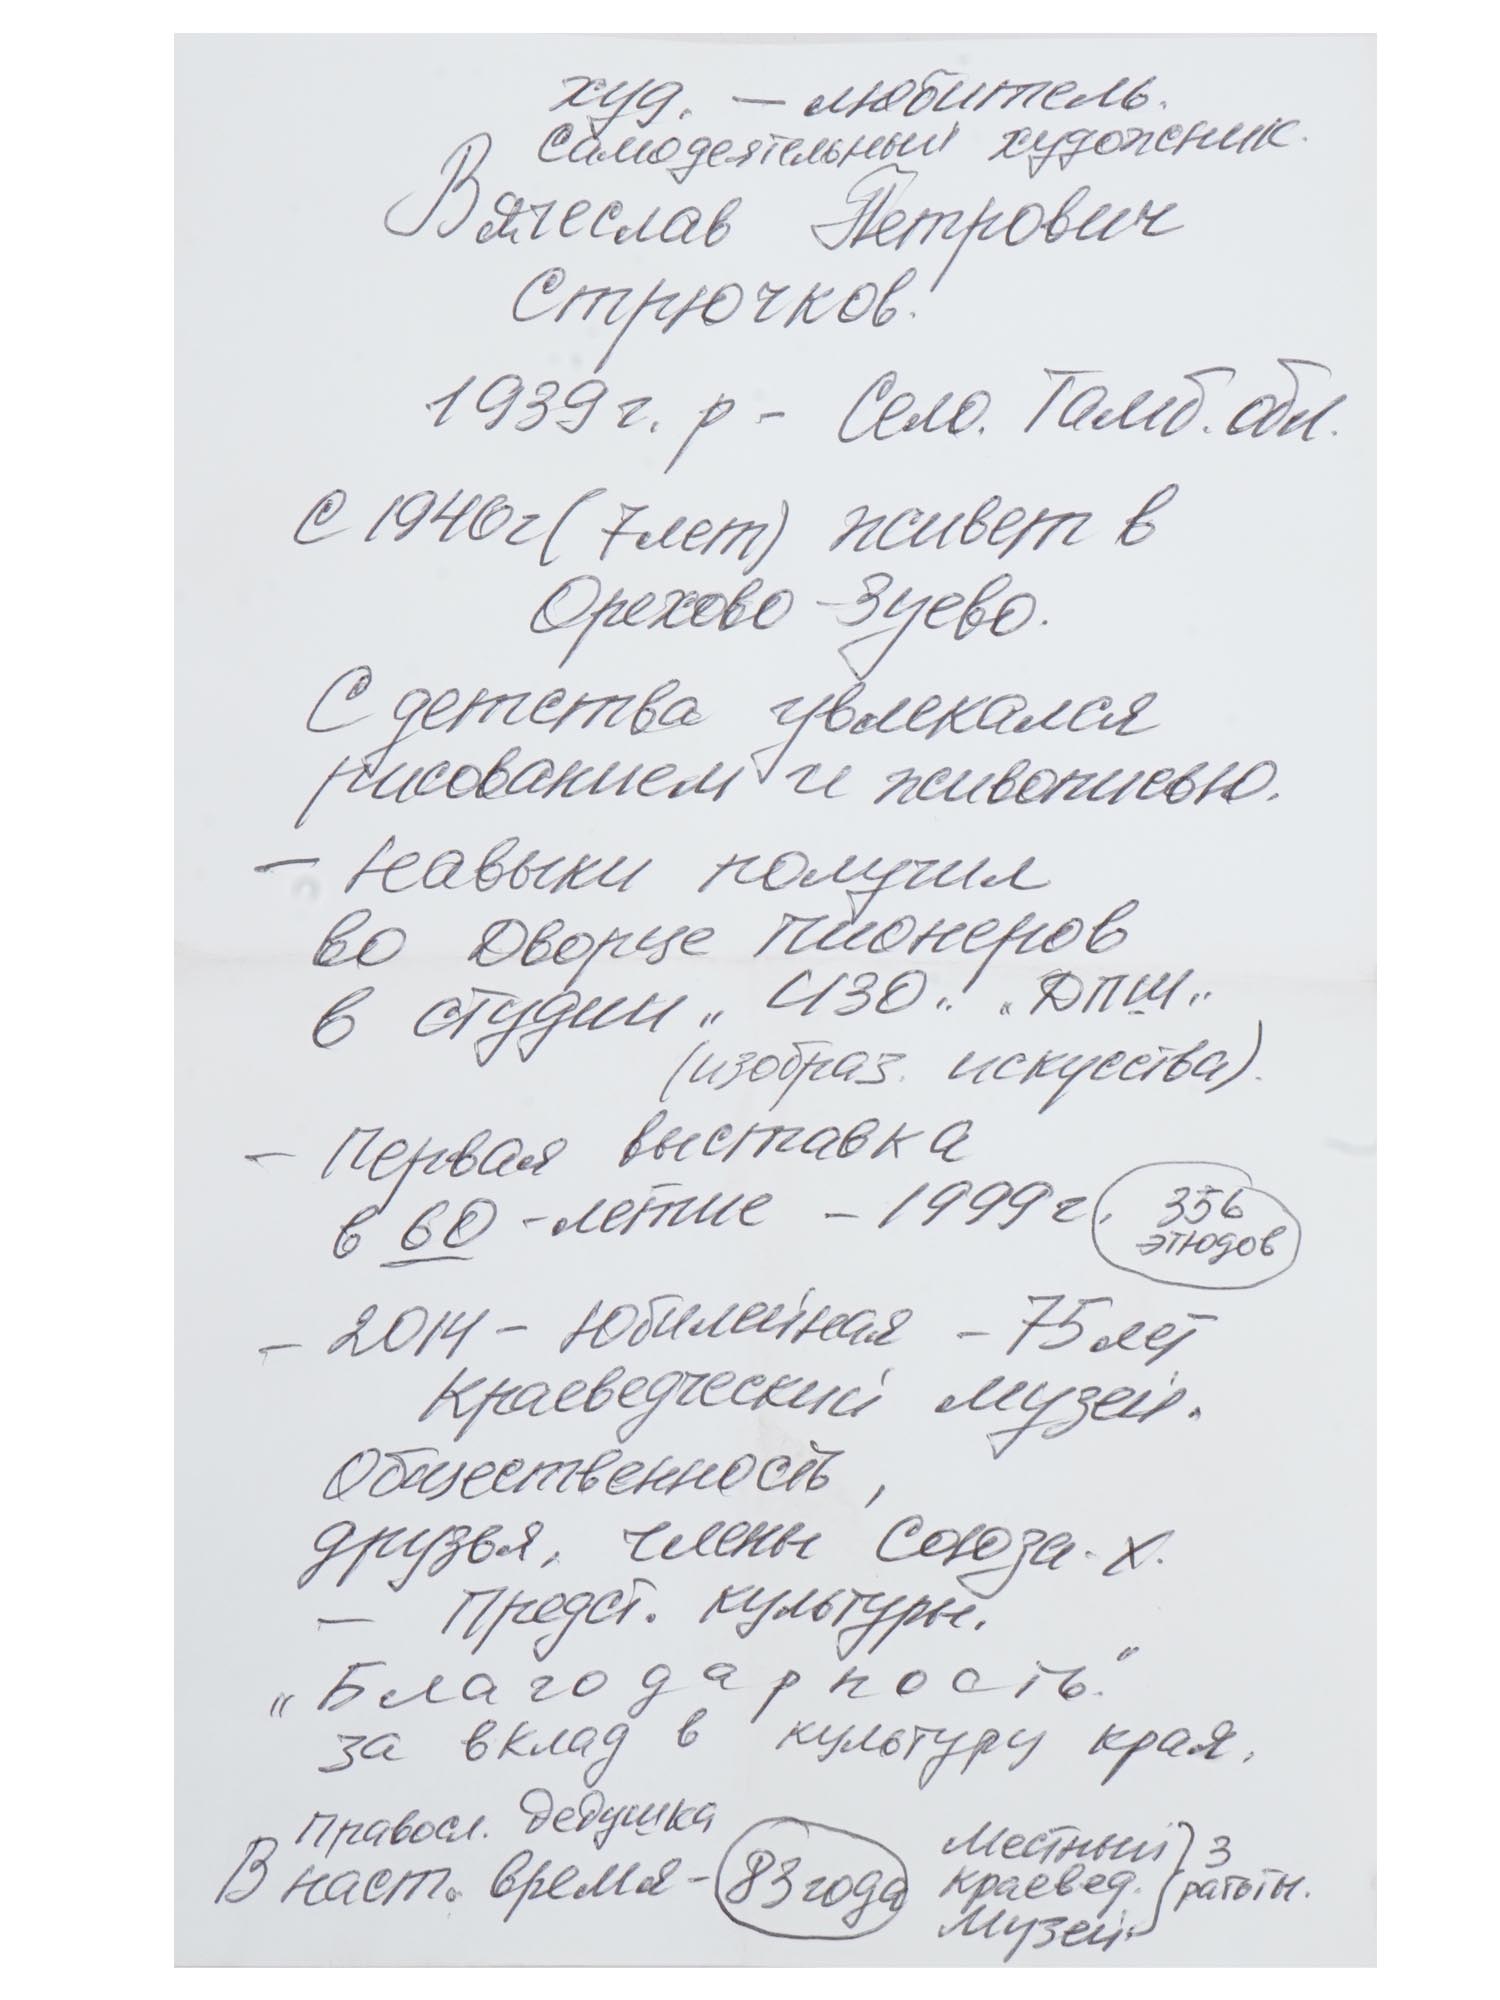 худ. — любитель.
самодеятельный художник.
Вячеслав Петрович
Стрючков.
1939 г. р - Село. Тамб. обл.
С 1946 г (7 лет) живет в
Орехово-Зуево.
С детства увлекался
рисованием и живописью.
— Навыки получил
во Дворце пионеров
в студии „ИЗО" „ДПШ"
(изобраз. искусства).
- Первая выставка
в 60-летие - 1999 г. 356
этюдов
- 2014 - Юбилейная - 75 лет
Краеведческий музей.
Общественность,
друзья, члены Союза-х.
— Предст. культуры.
„Благодарность"
за вклад в культуру края.
Правосл. дедушка
В наст. время - 83 года
Местный
краевед.
Музей
3
работы.